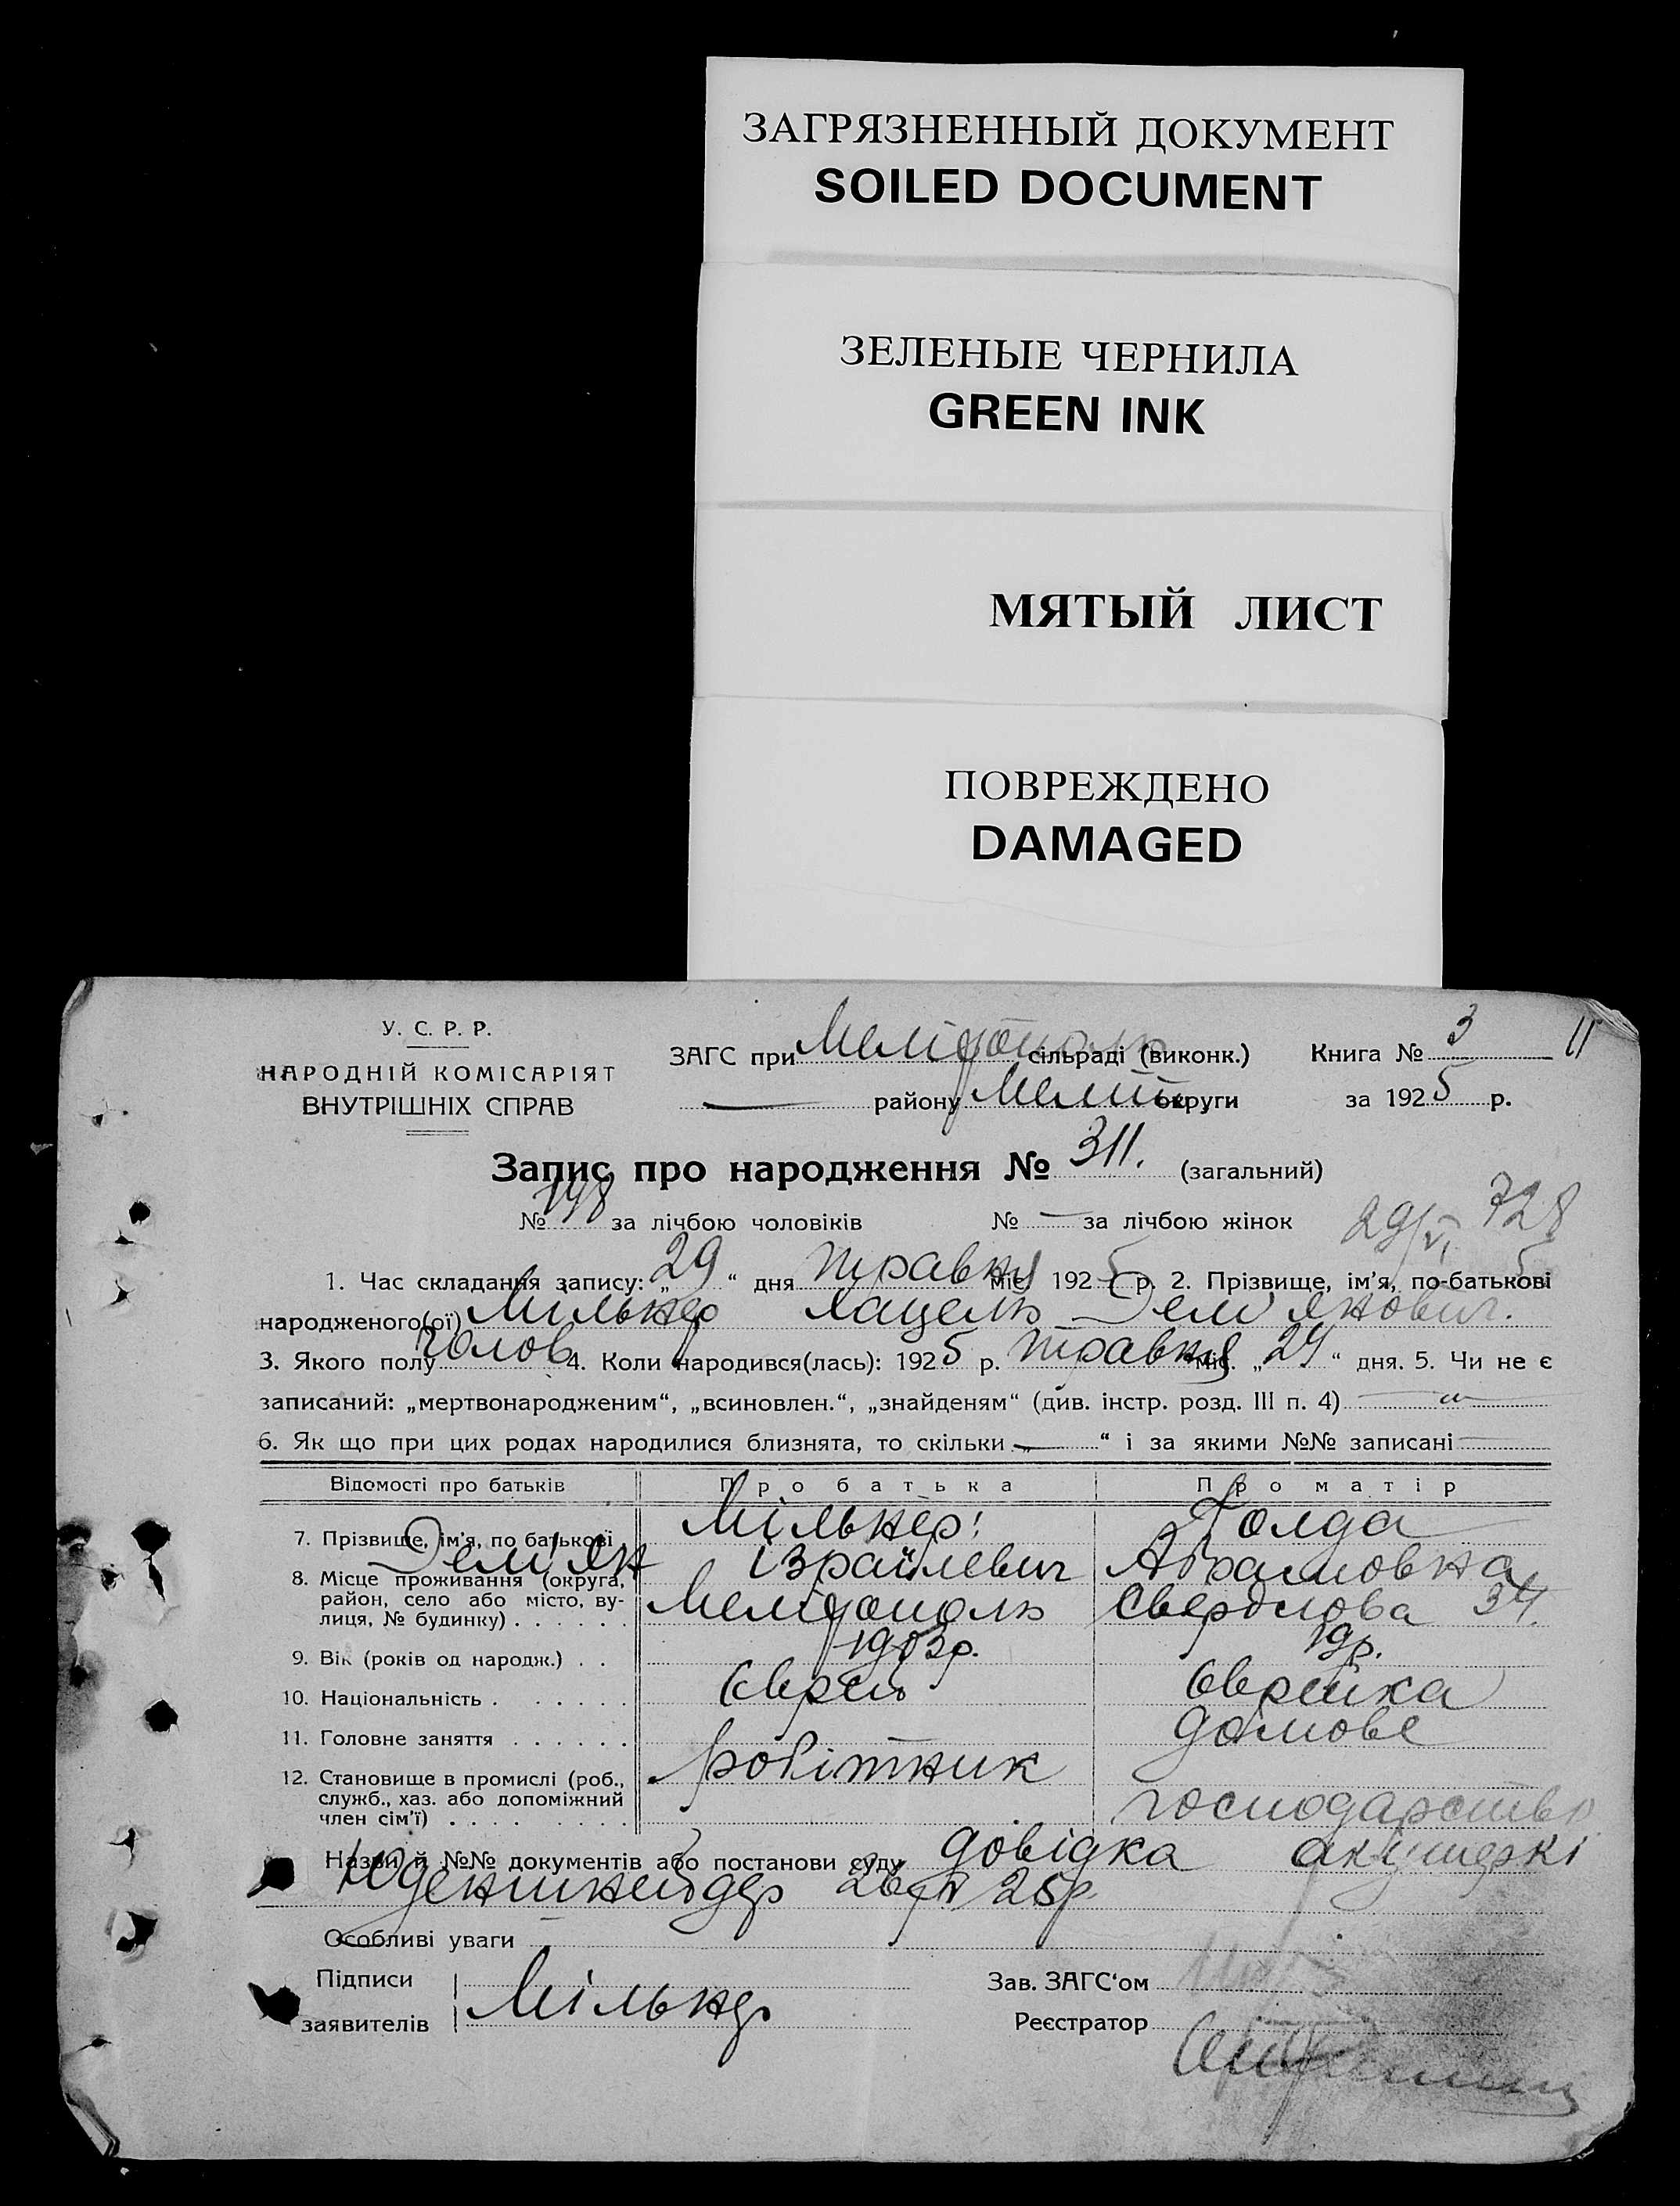 ЗАГРЯЗНЕННЫЙ ДОКУМЕНТ
SOILED DOCUMENT
ЗЕЛЕНЫЕ ЧЕРНИЛА
GREEN INK
МЯТЫЙ ЛИСТ
ПОВРЕЖДЕНО
DAMAGED
У. С. Р. Р.
НАРОДНІЙ КОМІСАРІЯТ
ВНУТРІШНІХ СПРАВ
ЗАГС при Мелітополь сільраді (виконк.) Книга № 3 11
— району Меліт округи за 1925 р.
Запис про народження № 311. (загальний)
№ 198 за лічбою чоловіків № — за лічбою жінок 29/VI 728
1. Час складання запису: „29“ дня травня міс. 1925 р. 2. Прізвище, ім'я, по-батькові
народженого(ої) Мільнер Хацель Дем'янович.
3. Якого полу чолов 4. Коли народився(лась): 1925 р. травня міс. „24“ дня. 5. Чи не є
записаний: „мертвонародженим“, „всиновлен.“, „знайденям“ (див. інстр. розд. III п. 4)
6. Як що при цих родах народилися близнята, то скільки „—“ і за якими №№ записані —
Відомості про батьків Про батька Про матір
7. Прізвище, ім'я, по батькові Мільнер Голда
Дем'ян Ізраїлевич Абрамовна
8. Місце проживання (округа, район, село або місто, вулиця, № будинку) Мелітополь Свердлова 34.
9. Вік (років од народж.) 1903р. 19р.
10. Національність Єврей Єврейка
11. Головне заняття домове
12. Становище в промислі (роб., служб., хаз. або допоміжний член сім'ї) робітник господарство
Назви й №№ документів або постанови суду довідка акушеркі
26/V 25р.
Особливі уваги
Підписи
заявителів Мільнер
Зав. ЗАГС'ом
Реєстратор